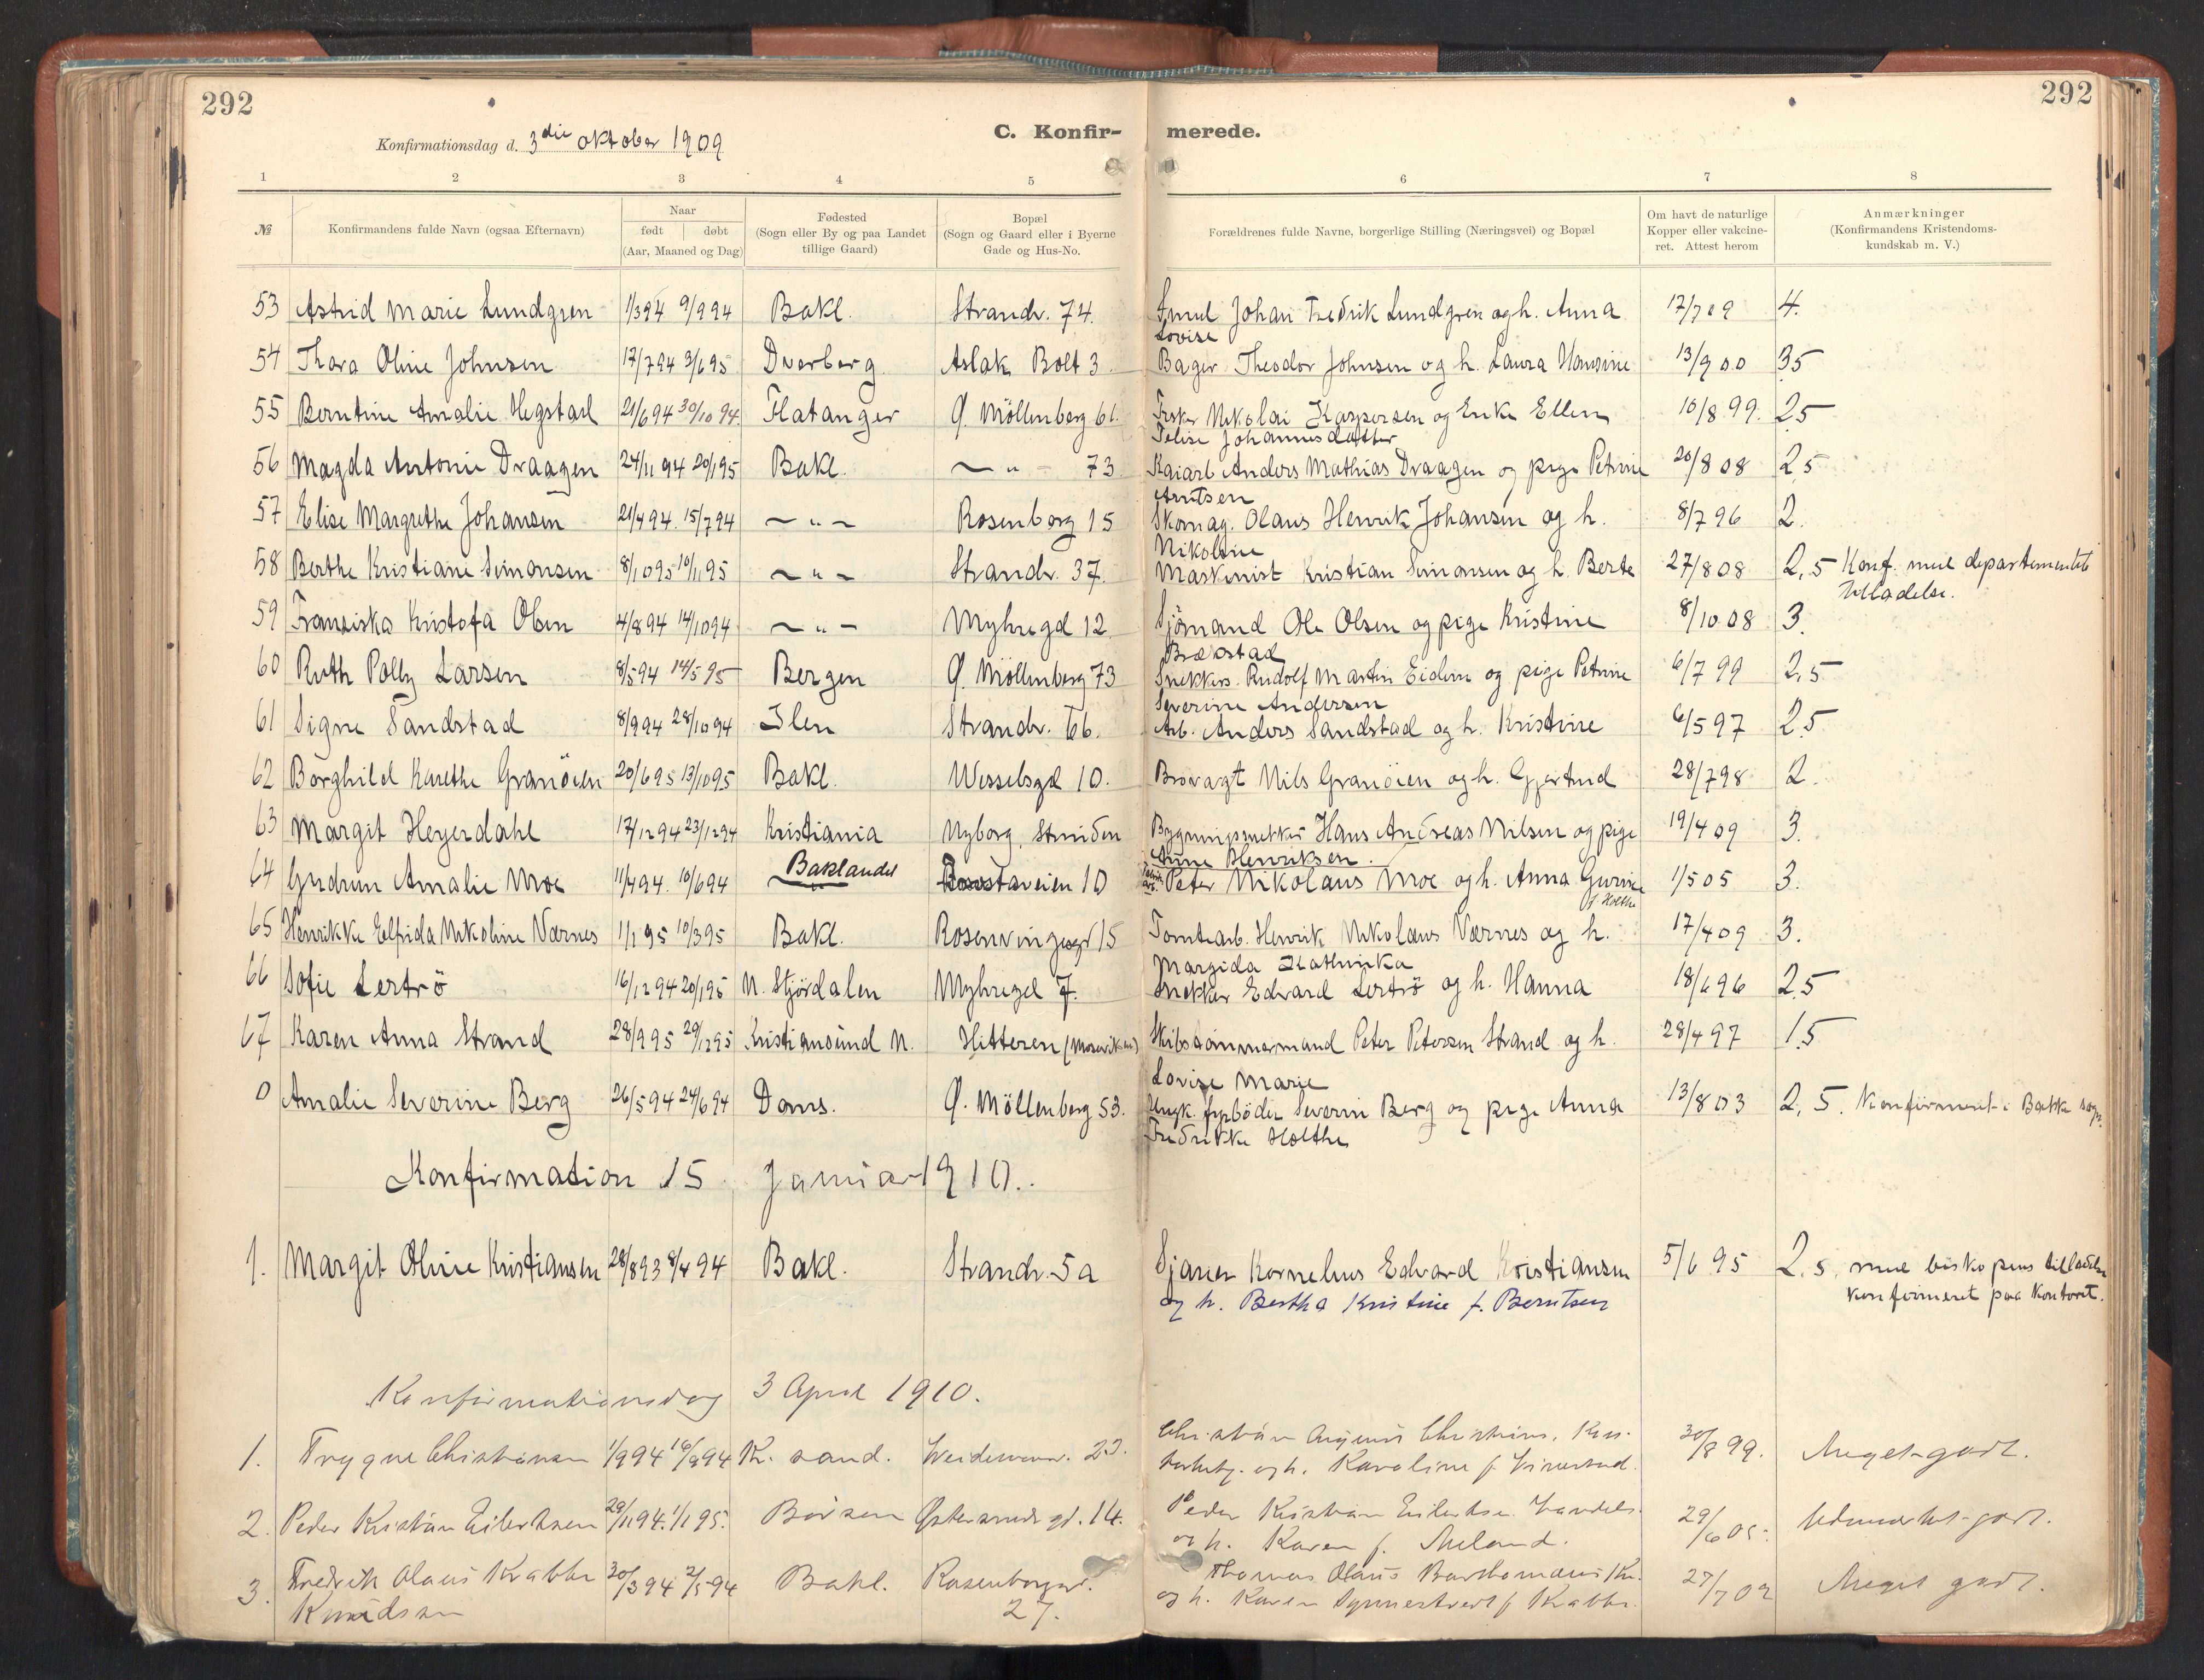 292
292
Konfirmationsdag d. 3die oktober 1909
C. Konfir-
merede.
1 2 3 4 5 6 7 8
№
Konfirmandens fulde Navn (ogsaa Efternavn)
Naar
født døbt
(Aar, Maaned og Dag)
Fødested
(Sogn eller By og paa Landet
tillige Gaard)
Bopæl
(Sogn og Gaard eller i Byerne
Gade og Hus-No.
Forældrenes fulde Navne, borgerlige Stilling (Næringsvei) og Bopæl
Om havt de naturlige
Kopper eller vakcine-
ret. Attest herom
Anmærkninger
(Konfirmandens Kristendoms-
kundskab m. V.)
53 Astrid Marie Lundgren 1/3 94 9/9 94 Bakl. Strandv. 74. Johan Fredrik Lundgren og h. Anna 17/7 09 4.
Lovise
54 Thora Oline Johnsen 17/7 94 3/6 95 Dverberg Aslak Bolt 3. Bager Theodor Johnsen og h. Laura Hansine 13/9 00 3,5
55 Berntine Amalie Hegstad 21/6 94 30/10 94. Flatanger Ø. Möllenberg 61. Fisker Nikolai Kaspersen og Enke Ellen 10/8 99. 2,5
Johannesdatter
56 Magda Antonie Draagen 24/11 94 20/1 95 Bakl. — " — 73 Kaiarb. Anders Mathias Draagen og pige Petrine 20/8 08 2,5
Arntsen
57 Elise Margrethe Johansen 21/4 94. 15/7 94 — " — Rosenborg 15 Skomag. Olaus Henrik Johansen og h. 8/7 96 2.
Nikoline
58 Berthe Kristiane Simonsen 8/10 95 10/11 95 — " — Strandv. 37. Maskinist Kristian Simonsen og h. Berte 27/8 08 2,5 Konf. med departementets
tilladelse.
59 Franziska Kristofa Olsen 4/8 94 14/10 94 — " — Myhregd 12 Sjömand Ole Olsen og pige Kristine 8/10 08 3.
Brækstad
60 Ruth Polly Larsen 8/5 94 14/5 95 Bergen Ø. Möllenberg 73 Snekkers. Rudolf Martin Eidem og pige Petrine 6/7 99 2,5
Severine Andersen
61 Signe Sandstad 8/9 94 28/10 94 Ilen Strandv. 66. Arb. Anders Sandstad og h. Kristine 6/5 97 2,5
62 Borghild Karethe Granöien 20/6 95 13/10 95 Bakl. Wesselsgd 10. Brovagt Nils Granöien og h. Gjertrud 28/7 98 2.
63 Margit Heyerdahl 17/12 94 23/12 94 Kristiania Nyborg, Strinden Bygningssnekker Hans Andreas Nilsen og pige 19/4 09 3.
Anne Henriksen.
64 Gudrun Amalie Moe 11/4 94. 10/6 94 Baklandet 10 Peter Nikolaus Moe og h. Anna Gurine 1/5 05 3.
f. Holthe
65 Henrikke Elfrida Nikoline Værnes 1/1 95 10/3 95 Bakl. Rosenvingesgd 15 Tomtearb. Henrik Nikolaus Værnes og h. 17/4 09 3.
Margida Kathinka
66 Sofie Lertrö 16/12 94 20/1 95 N. Stjördalen Myhregd 7. Snekker Edvard Lertrö og h. Hanna 18/6 96 2,5
67 Karen Anna Strand 28/9 95 29/12 95 Kristiansund N. Hitteren Skibstömmermand Peter Petersen Strand og h. 28/4 97 1,5
Lovise Marie
0 Amalie Severine Berg 26/5 94 24/6 94 Doms. Ø. Möllenberg 53. Ungk. fyrböder Severin Berg og pige Anna 13/8 03 2,5. Konfirmeret i Bakke sogn.
Fredrikke Holthe
Konfirmation 15 Januar 1910.
1. Margit Oline Kristiansen 28/8 93 8/4 94 Bakl. Strandv. 5a Sjauer Kornelius Edvard Kristiansen 5/6 95 2,5. med biskopens tilladelse
og h. Bertha Kristine f. Berntsen konfirmeret paa kontoret.
Konfirmationsdag 3 April 1910.
1. Trygve Christiansen 1/9 94 16/9 94 K. sand. Weidemannsv. 23. Christian 30/8 99. Meget godt.
og h. Karoline f.
2. Peder Kristian Eilertsen 29/11 94. 1/1 95. Börsen Östersundsgd. 14. Peder Kristian Eilertsen Handels. 29/6 05. Udmerket godt.
og h. Karen f. Meland.
3. Fredrik Olaus Krabbe 30/3 94 2/5 94 Bakl. Rosenborggd. Thomas Olaus Bartholomæus Kn. 27/7 02 Meget godt.
Knudsen 27. og h. Karen Synnestvedt f. Krabbe.